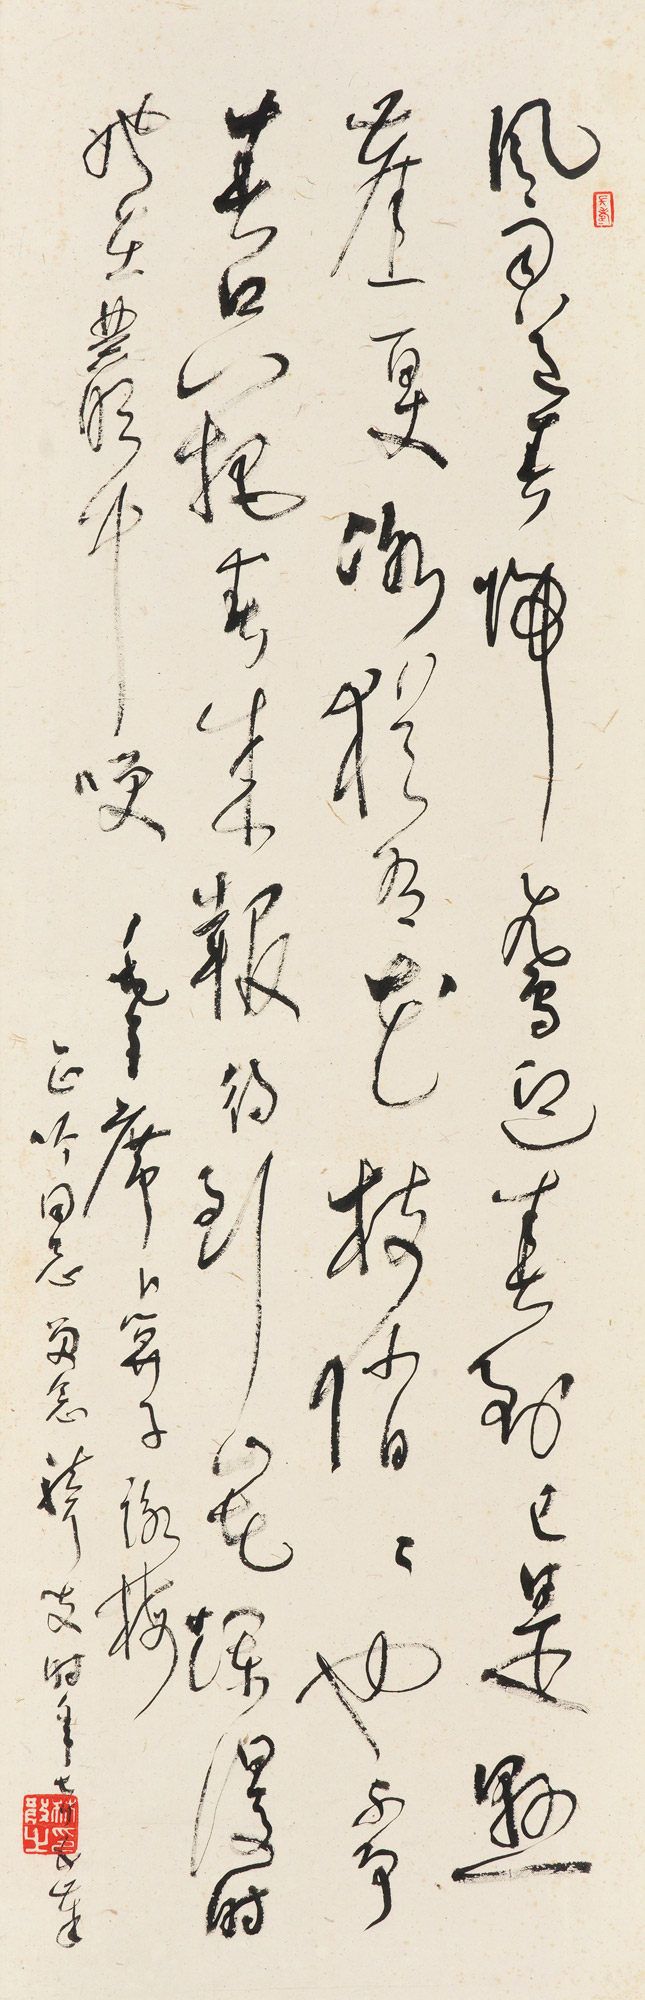 风雨送春歸飛雪迎春到已是懸
崖百丈冰猶有花枝俏〻也不争
春只把春来報待到山花爛漫时
她在叢中笑 毛主席卜算子詠梅
正吟同志留念 聾叟时年七十